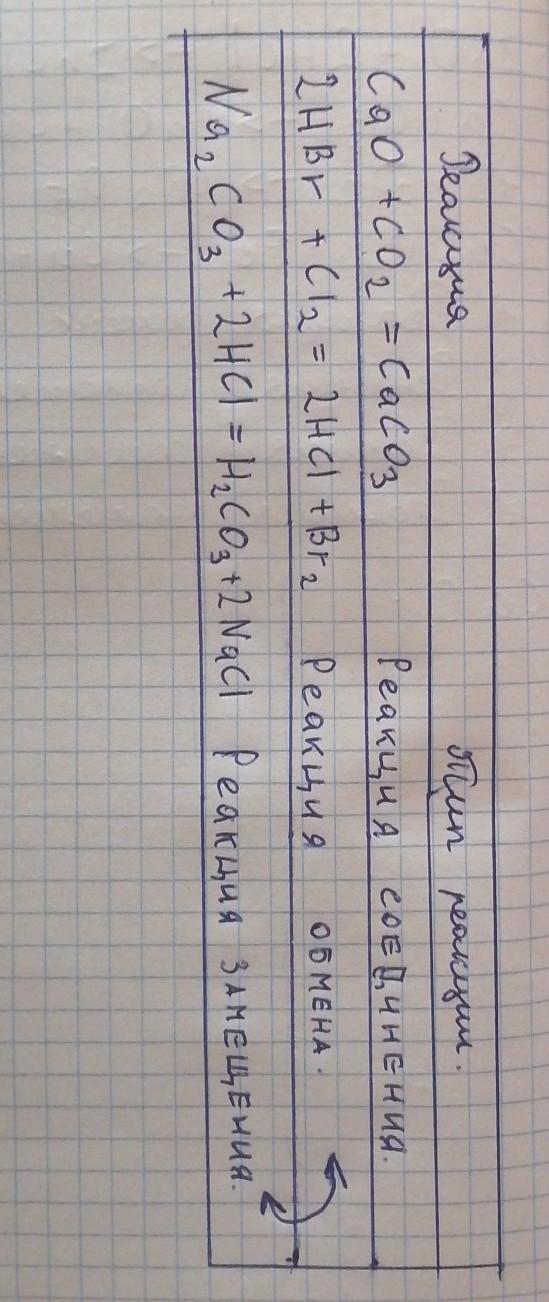 Реакция Тип реакции.
CaO + CO₂ = CaCO₃ Реакция соединения.
2HBr + Cl₂ = 2HCl + Br₂ Реакция обмена.
Na₂CO₃ + 2HCl = H₂CO₃ + 2NaCl Реакция замещения.